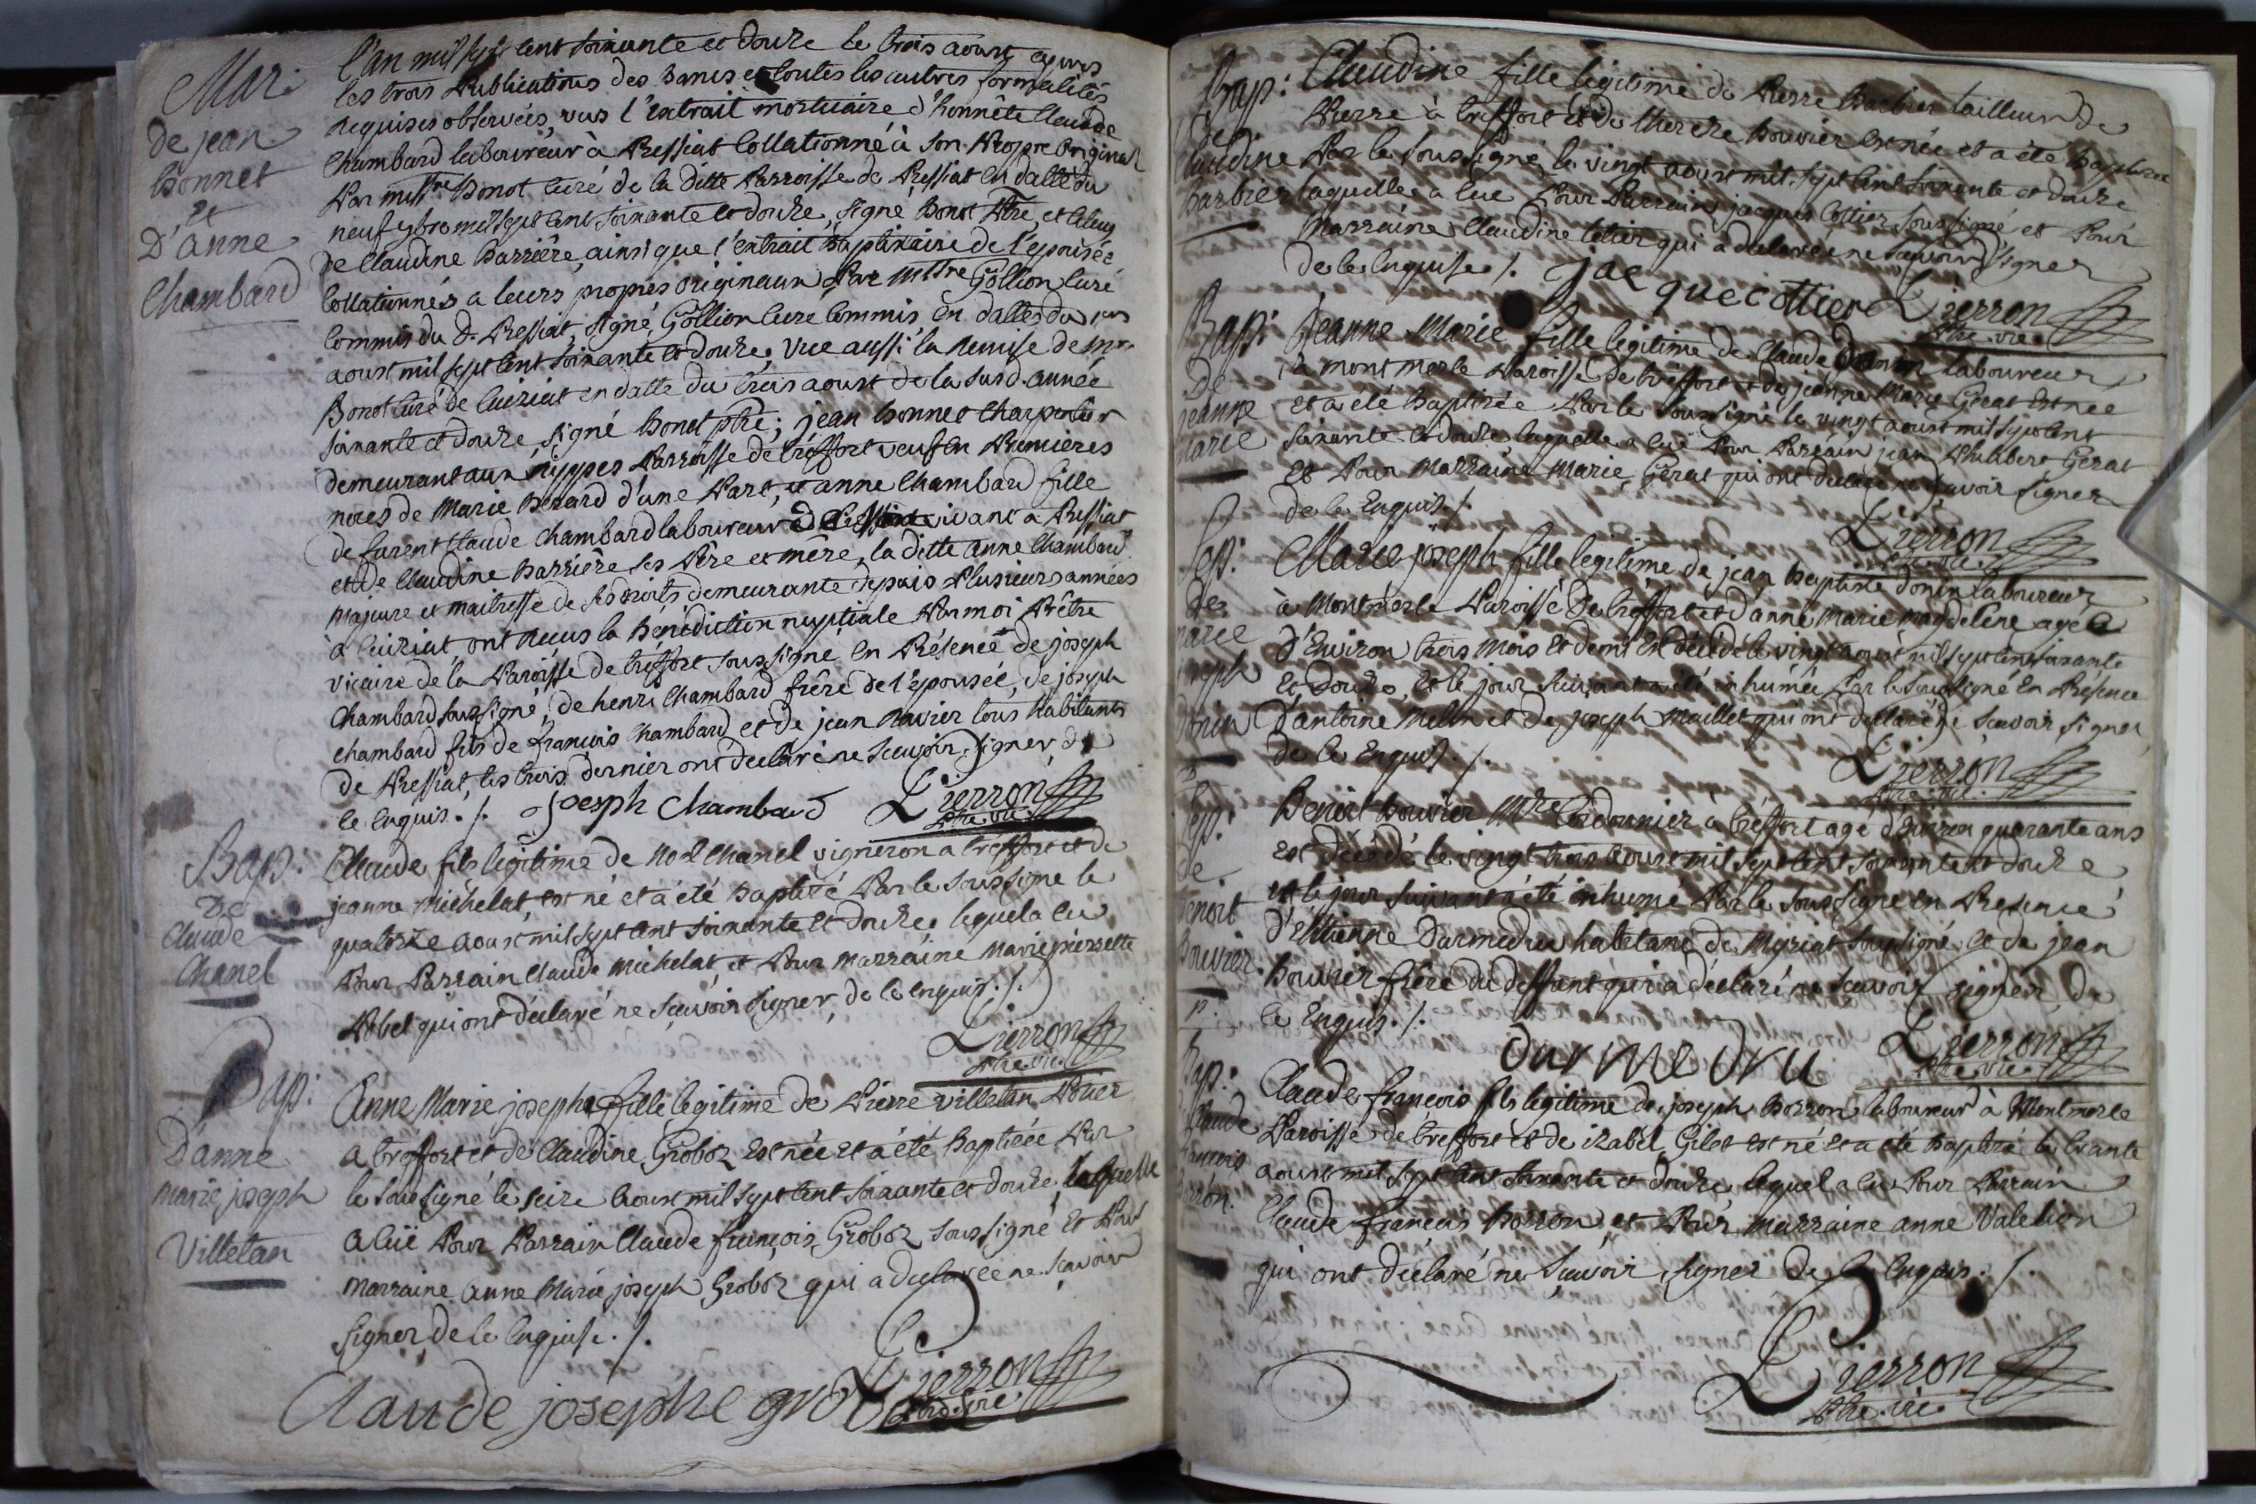 Mar:
de jean
bonnet
et
D'anne
Chambard
l'an mil sept cent soixante et douze le trois aoust apres
les trois Publications des bancs et toutes les autres formalités
requises observées, vus l'extrait mortuaire d'honnête Claude
Chambard laboureur à Pressiat Collationné à son Propre Original
Par missre bonot curé de la ditte Parroisse de Pressiat en datte du
neuf mil sept cent soixante et douze, signé bonot Ptre, et Celuy
de Claudine barrière, ainsi que l'extrait baptistaire de l'epousée
Collationnés a leurs propres originaux Par missre Gollion curé
Commis du d. Pressiat, signé, Gollion curé Commis en datte du
aoust mil sept cent soixante et douze. Vue aussi la remise de mr
Bonot curé de Cuiziat en datte du trois aoust de la susd. année
soixante et douze signé bonot ptre; jean bonnet Charpentier
demeurant aux nippes Parroisse de treffort veuf en Premières
noces de Marie bérard d'une Part, et anne Chambard fille
de furent Claude Chambard laboureur vivant a Pressiat
et de Claudine barrière ses Père et mère, la ditte anne Chambard
majeure et maitresse de ses droits demeurante depuis Plusieurs années
à Cuiziat ont reçus la bénédiction nuptiale Par moi Prêtre
vicaire de la Paroisse de treffort soussigné en Présence de joseph
Chambard soussigné, de henri Chambard frère de l'epousée, de joseph
chambard fils de françois Chambard et de jean ravier tous habitants
de Pressiat, les trois dernier ont déclaré ne Sçavoir signer de
ce Enquis ./. Joesph Chambard Pierron
Ptre. vic.
Bap:
De
Claude
Chanel
Claude fils légitime de Noel Chanel vigneron a treffort et de
jeanne michelat, est né et a été baptisé Par le soussigné le
quatorze aoust mil sept cent soixante et douze. lequel a eu
Pour Parrain Claude Michelat, et Pour marraine Marie pierrette
Nobel qui ont déclaré ne sçavoir signer, de ce enquis ./.
Pierron
Ptre. vic.
Bap:
D'anne
Marie joseph
Villetan
Anne Marie josephe fille legitime de Pierre villetan Potier
a treffort et de Claudine Groboz Est née et a été baptisée Par
le soussigné le seize aoust mil sept cent soixante et douze laquelle
a eüe Pour Parrain Claude françois Groboz soussigné et Pour
marraine anne Marie joseph Groboz qui a declarée ne scavoir
signer, de ce Enquise ./.
Claude josephe Pierron
Ptre. vic.
Bap:
De
Claudine
barbier
Claudine fille legitime de Pierre barbier tailleur de
Pierre à treffort et de therese bouvier Est née et a été baptisée
Par le soussigné le vingt aoust mil sept cent soixante et douze
laquelle a eue Pour Parrain jacques Cottier soussigné et Pour
Marraine Claudine qui a declarée ne sçavoir signer
de ce Enquise ./. jacque cottier Pierron
Ptre. vic.
Bap:
De
jeanne
marie
Jeanne Marie fille legitime de Claude laboureur
à mont merle Paroisse de treffort et de jeanne Marie Gerat Est née
et a été baptisée Par le soussigné le vingt aoust mil sept cent
soixante et douze laquelle a eue Pour Parrain jean Philibert Gerat
et Pour Marraine Marie Gerat qui ont déclaré ne sçavoir signer
de ce Enquis ./.
Pierron
Ptre. vic.
Sep:
De
marie
joseph
donin
Marie joseph fille legitime de jean baptiste donin laboureur
à Montmerle Paroisse de treffort et d'anne Marie magdelène agée
d'Environ trois mois et demi Est décédée le vingt aoust mil sept cent soixante
et douze, et le jour suivant a été inhumée Par le soussigné En Présence
D'antoine et de joseph Maillet qui ont déclaré ne Scavoir signer
de ce Enquis ./.
Pierron
Ptre. vic.
Sep:
de
benoit
bouvier
Benoit bouvier Mtre Cordonnier a treffort agé d'Environ quarante ans
est décédé le vingt trois aoust mil sept cent soixante et douze
et le jour suivant a été inhumé Par le soussigné en Présence
D'étienne Durmedru habitant de Meyriat soussigné, et de jean
bouvier frère du deffunt qui a déclaré ne Sçavoir signer, de
ce Enquis ./.
Durmedru Pierron
Ptre. vic.
Bap:
Claude
françois
borron
Claude françois fils legitime de joseph borron laboureur à Montmerle
Paroisse de treffort et de izabel Gilet est né et a été baptisé le trante
aoust mil sept cent soixante et douze lequel a eu Pour Parrain
Claude françois borron, et Pour marraine anne Valetion
qui ont déclaré ne Sçavoir signer de ce Enquis ./.
Pierron
Ptre. vic.